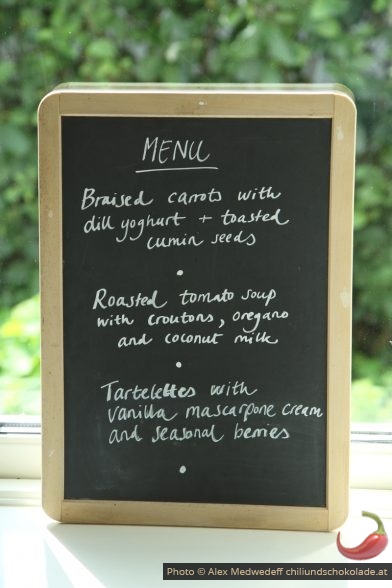 MENU
Braised carrots with
dill yoghurt + toasted
cumin seeds
•
Roasted tomato soup
with croutons, oregano
and coconut milk
•
Tartelettes with
vanilla mascarpone cream
and seasonal berries
•
Photo © Alex Medwedeff chiliundschokolade.at